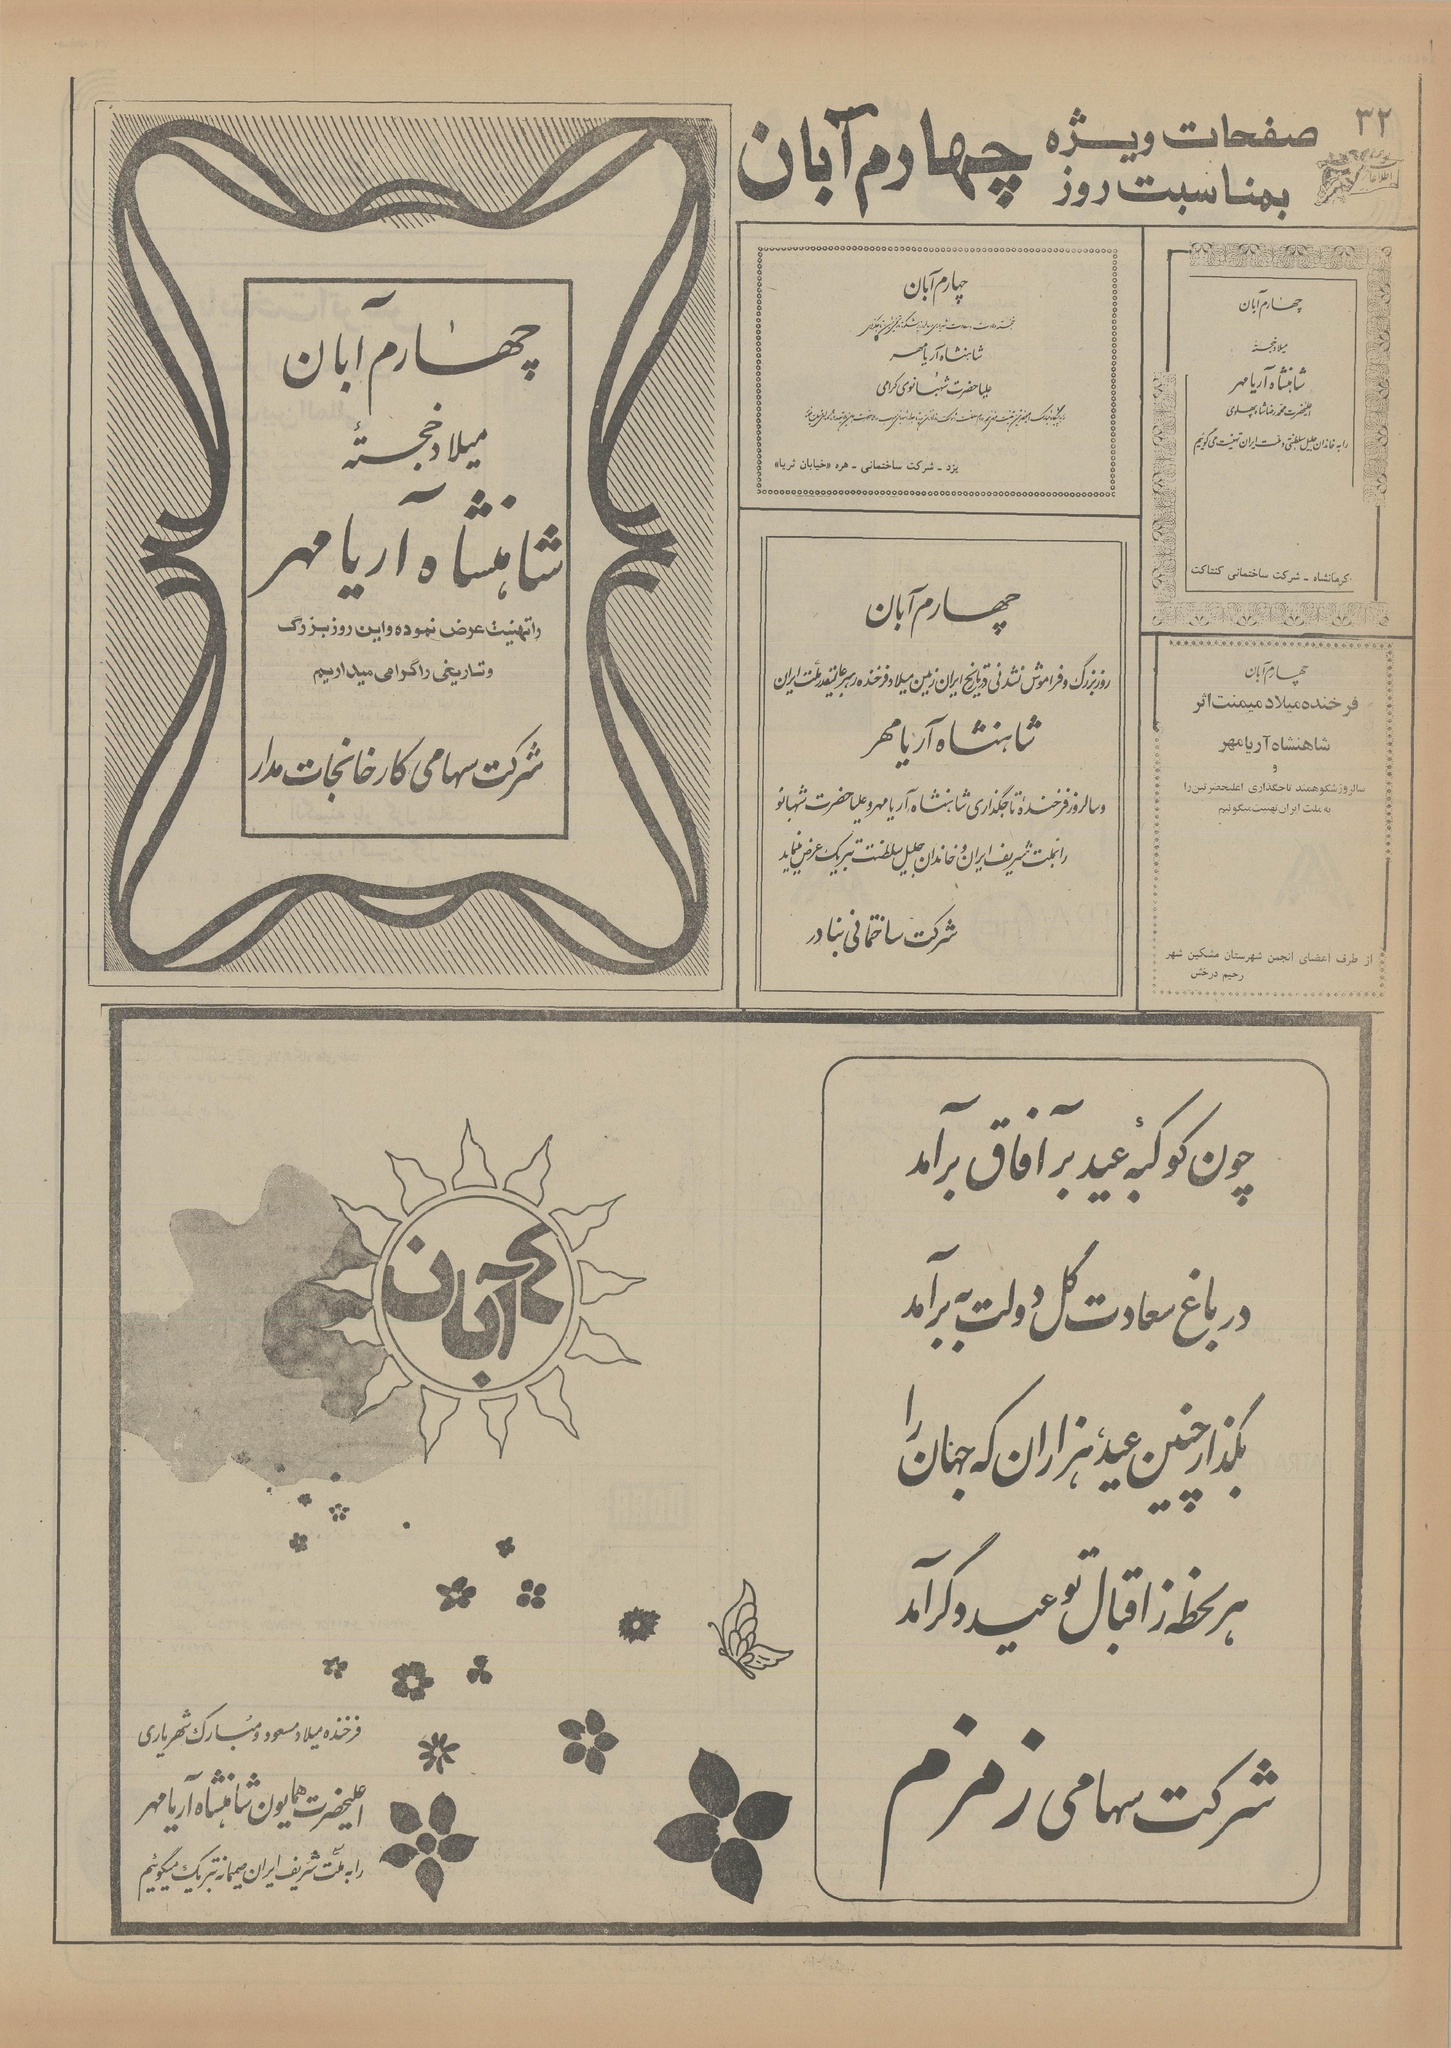 ۳۲
صفحات ویژه
بمناسبت روز
چهارم آبان
اطلاعات
چهارم آبان
میلاد خجستۀ
شاهنشاه آریامهر
اعلیحضرت محمدرضا شاه پهلوی
را به خاندان جلیل سلطنتی و ملت ایران تهنیت می گوئیم
کرمانشاه - شرکت ساختمانی کنتاکت
چهارم آبان
شاهنشاه آریامهر
علیاحضرت شهبانوی گرامی
یزد - شرکت ساختمانی - هره «خیابان ثریا»
چهارم آبان
میلاد خجستۀ
شاهنشاه آریا مهر
را تهنیت عرض نموده و این روز بزرگ
و تاریخی را گرامی میداریم
شرکت سهامی کارخانجات مدار
چهارم آبان
روز بزرگ و فراموش نشدنی در تاریخ ایران زمین میلاد فرخنده رهبر عالیقدر ملت ایران
شاهنشاه آریامهر
و سالروز فرخندۀ تاجگذاری شاهنشاه آریامهر و علیاحضرت شهبانو
را بملت شریف ایران و خاندان جلیل سلطنت تبریک عرض مینماید
شرکت ساختمانی بنادر
چهارم آبان
فرخنده میلاد میمنت اثر
شاهنشاه آریامهر
و
سالروز شکوهمند تاجگذاری اعلیحضرتین را
به ملت ایران تهنیت میگوئیم
از طرف اعضای انجمن شهرستان مشکین شهر
رحیم درخش
چون کوکبۀ عید بر آفاق برآمد
در باغ سعادت گل دولت به برآمد
بگذار چنین عید هزاران که جهان را
هر لحظه ز اقبال تو عید دگر آمد
شرکت سهامی زمزم
۴ آبان
فرخنده میلاد مسعود و مبارک شهریاری
اعلیحضرت همایون شاهنشاه آریامهر
را به ملت شریف ایران صمیمانه تبریک میگوئیم